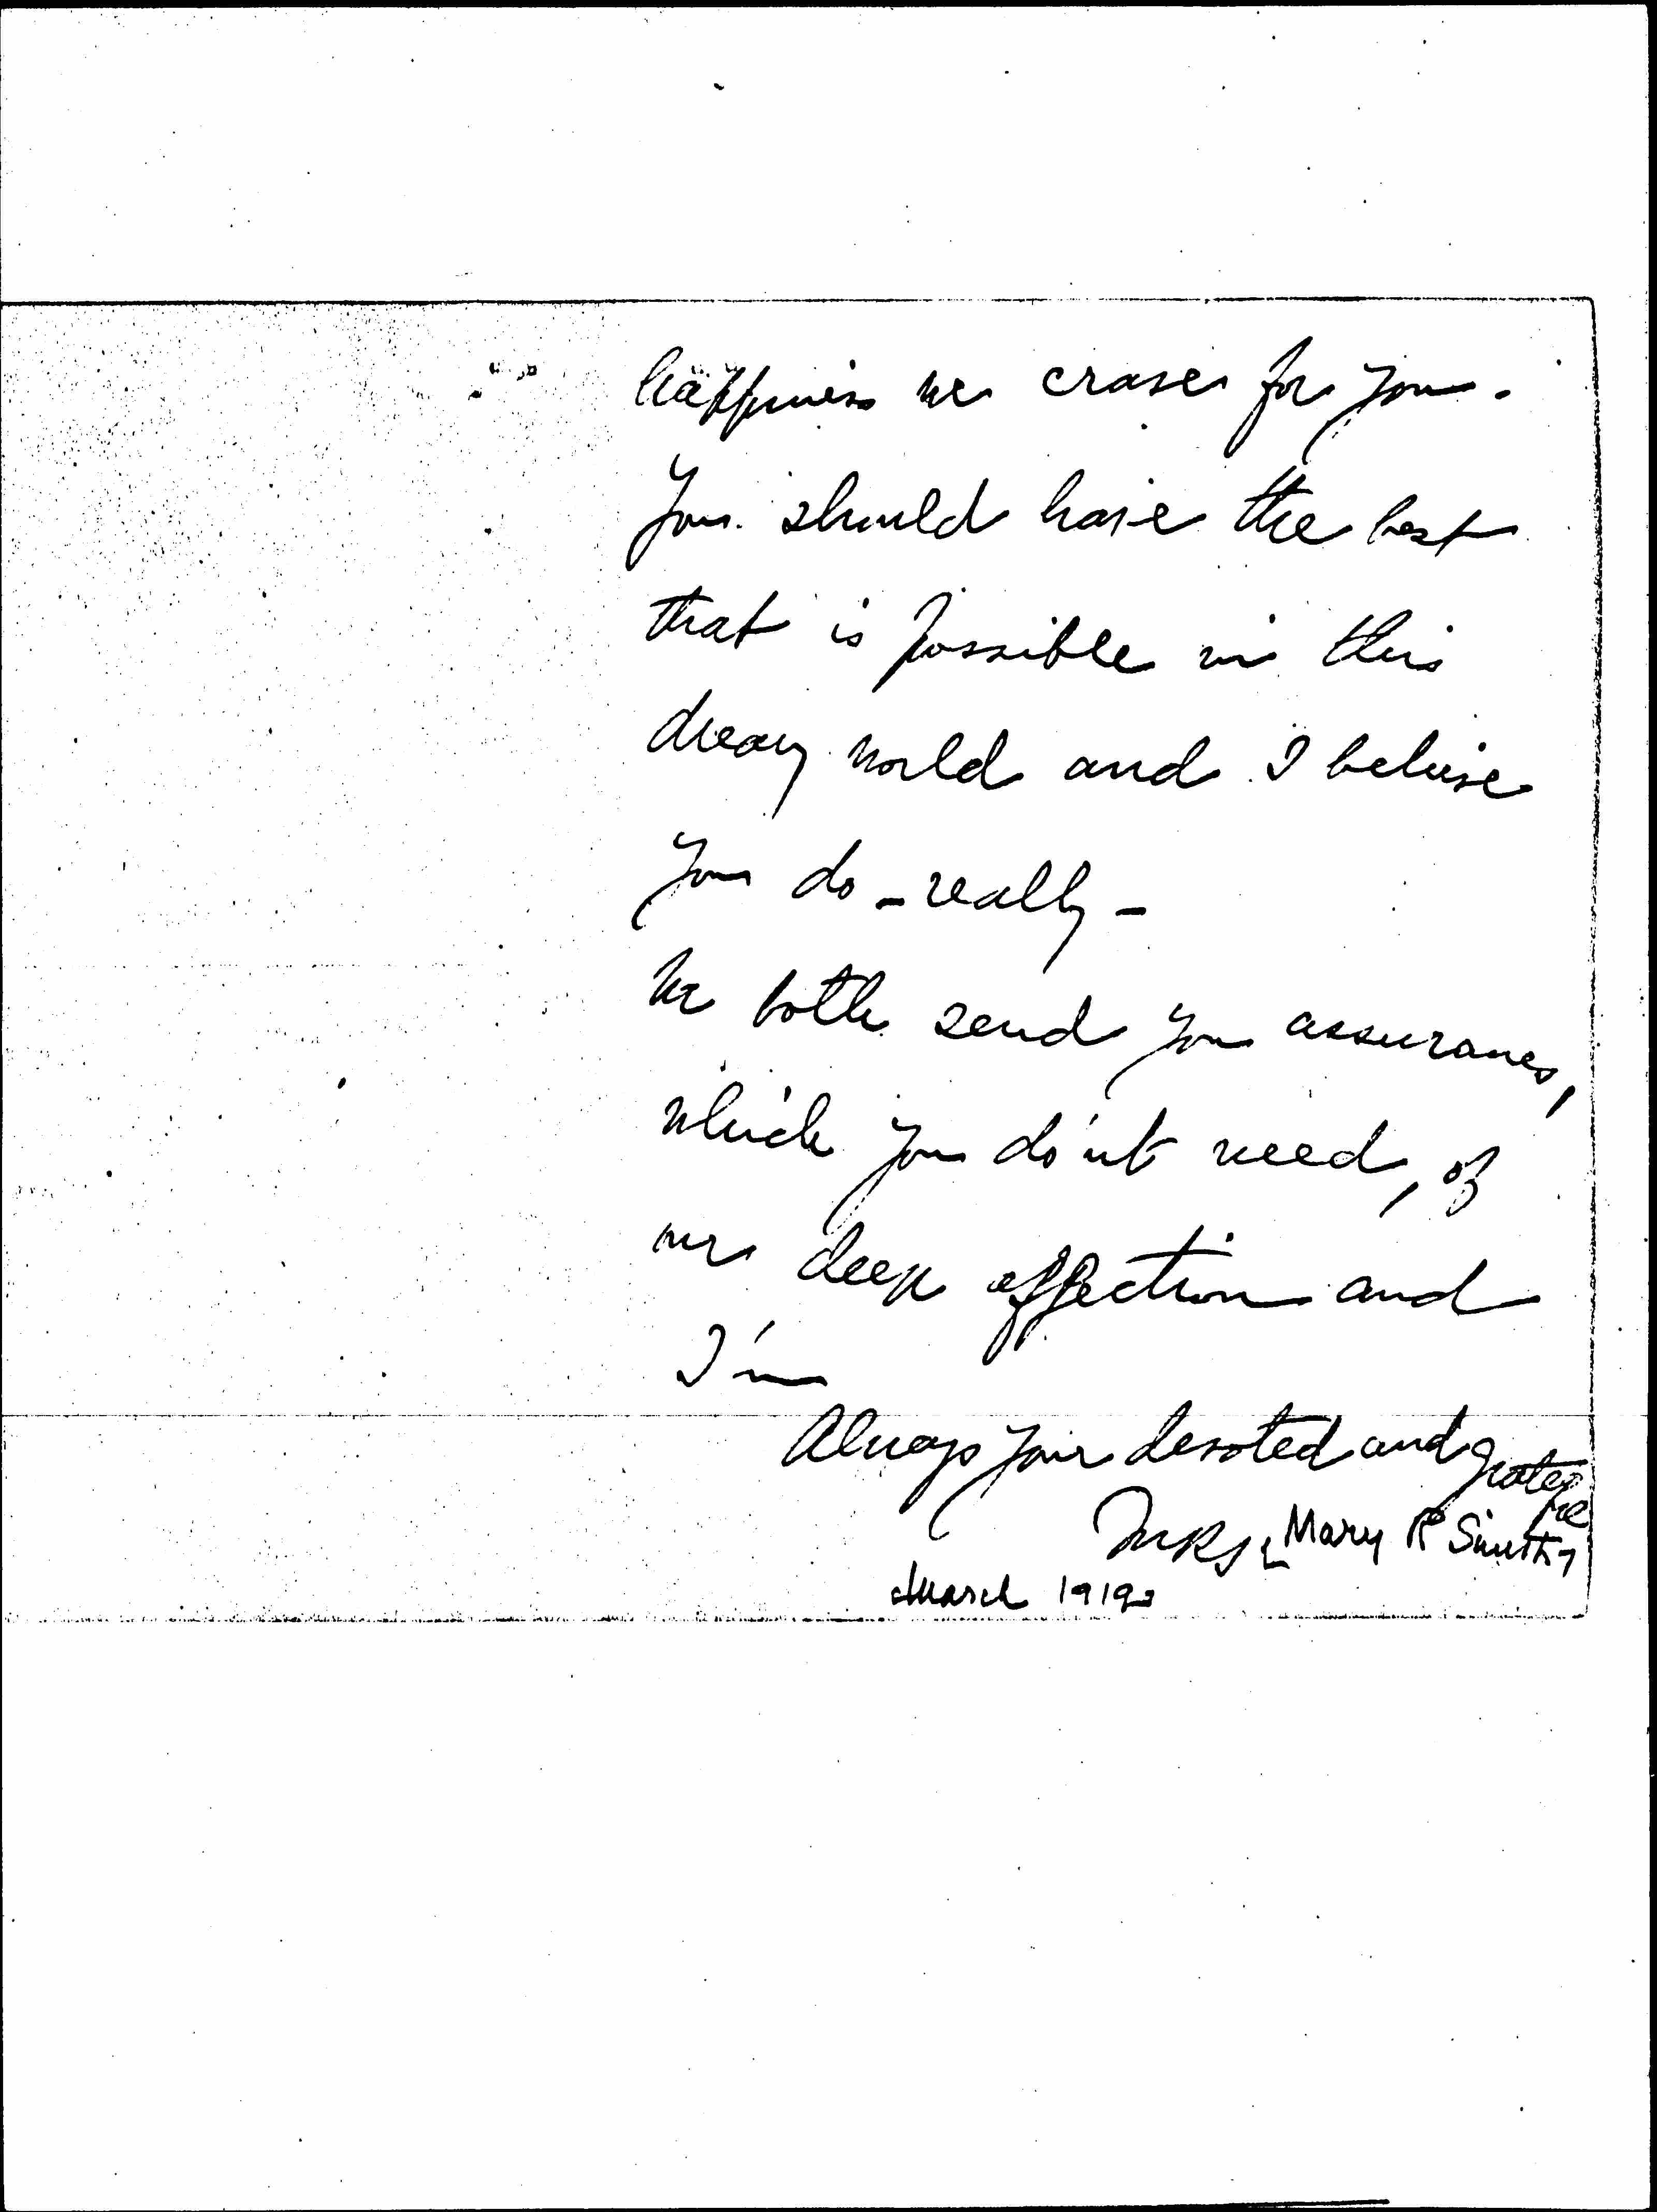 happiness we crave for you.
You should have the best
that is possible in this
dreary world and I believe
you do - really -
We both send you assurances,
which you do'nt need, of
our deep affection and
I'm
Always your devoted and grateful
MRS [Mary R Smith]
March 1919